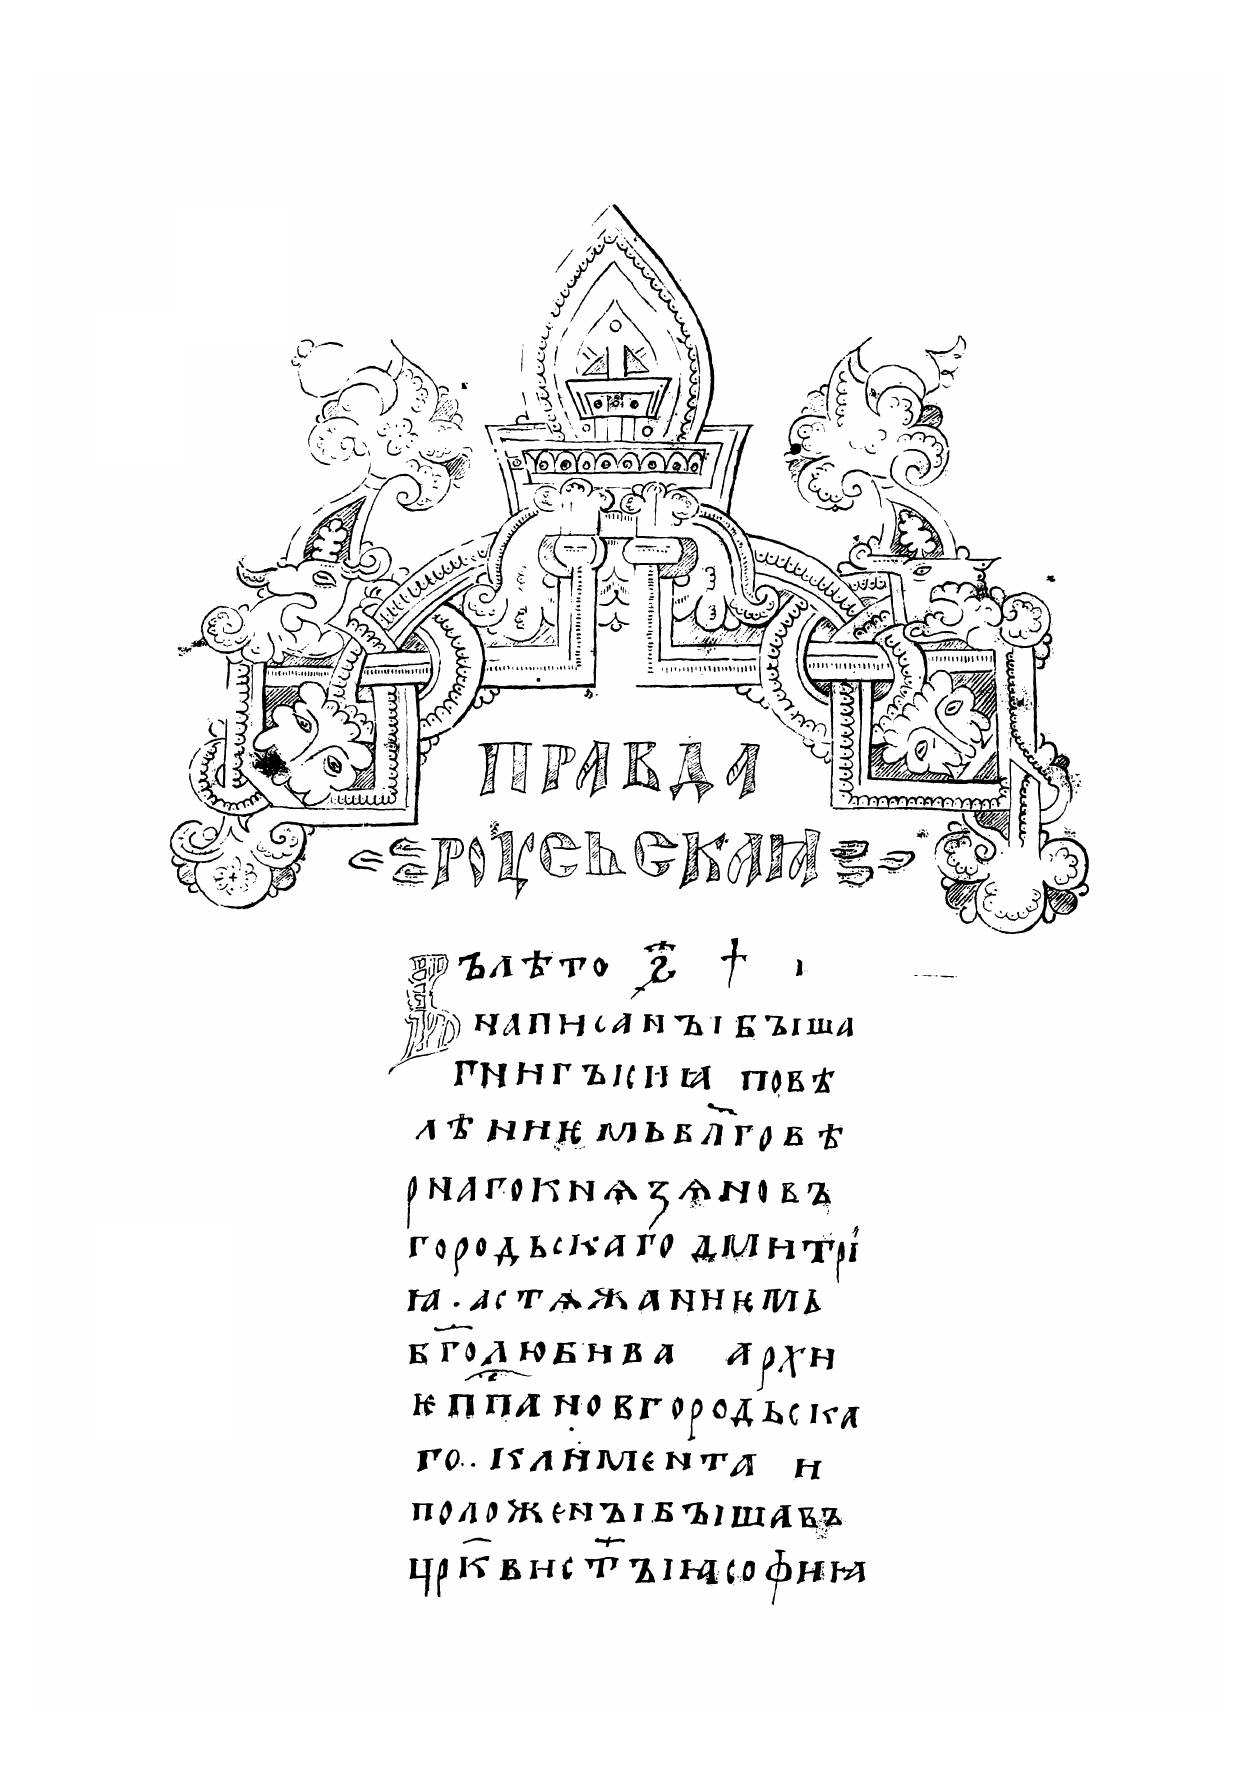 ПРАВДА
РОУСЬСКАꙖ
Въ лѣто ҂ѕ҃ ѱ і
напısанъı бъıша
книгъı сиꙗ повѣ
лѣниѥмь бл҃говѣ
рнаго кнѧзѧ новъ
городьскаго дмитрі
ꙗ · а стѧжаниѥмь
бг҃олюбива архи
ѥпп҃а новгородьска
го · климента и
положенъı бъıша въ
црк҃ви ст҃ъıꙗ софиꙗ